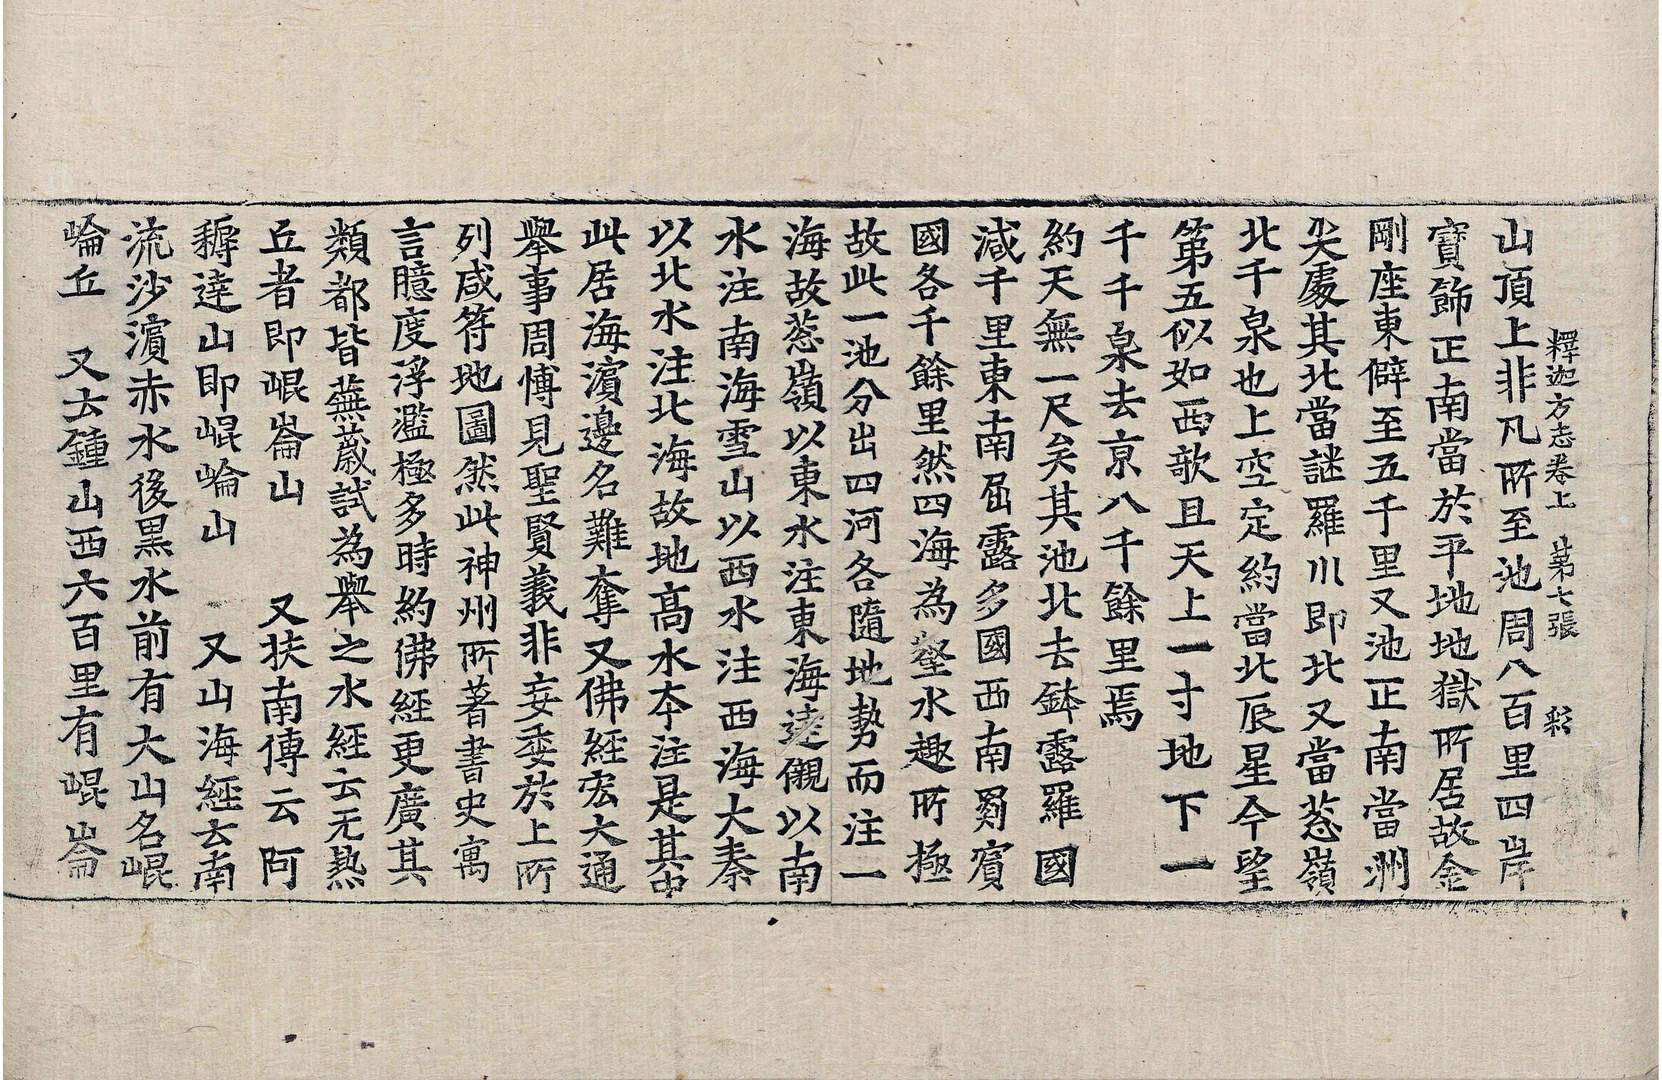 釋迦方志卷上 第七張 彩
山頂上非凡所至池周八百里四岸
寶飾正南當於平地地獄所居故金
剛座東僻至五千里又池正南當洲
尖處其北當謎羅川即北又當葱嶺
北千泉也上空定約當北辰星今望
第五似如西欹且天上一寸地下一
千千泉去京八千餘里焉
約天無一尺矣其池北去鉢露羅國
減千里東南屈露多國西南罽賓
國各千餘里然四海為壑水趣所極
故此一池分出四河各隨地勢而注一
海故葱嶺以東水注東海達儭以南
水注南海雪山以西水注西海大秦
以北水注北海故地高水本注是其中
此居海濵邊名難奪又佛經宏大通
舉事周愽見聖賢義非妄委於上所
列咸符地圖然此神州所著書史寓
言臆度浮濫極多時約佛經更廣其
類都皆蕪薉試為舉之水經云无熱
丘者即崐崙山 又扶南傳云阿
耨達山即崐崘山 又山海經云南
流沙濵赤水後黒水前有大山名崐
崘丘 又云鍾山西六百里有崐崙